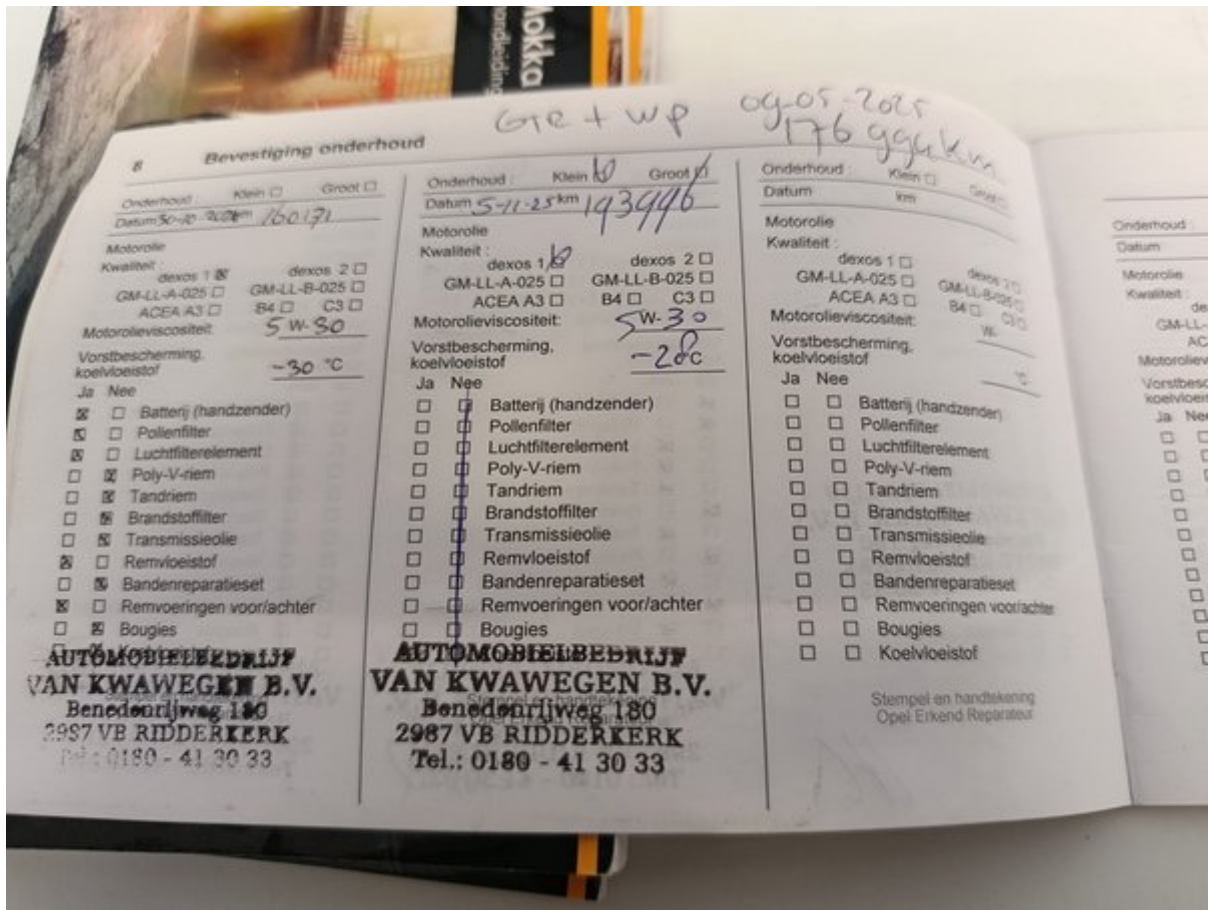 Mokka
GTR + WP 09-05-2025
176 994 km
8 Bevestiging onderhoud
Onderhoud : Klein Groot
Datum 30-10 km 160171
Motorolie
Kwaliteit :
dexos 1 dexos 2
GM-LL-A-025 GM-LL-B-025
ACEA A3 B4 C3
Motorolieviscositeit: 5 W- 30
Vorstbescherming,
koelvloeistof -30 °C
Ja Nee
Batterij (handzender)
Pollenfilter
Luchtfilterelement
Poly-V-riem
Tandriem
Brandstoffilter
Transmissieolie
Remvloeistof
Bandenreparatieset
Remvoeringen voor/achter
Bougies
AUTOMOBIELBEDRIJF
VAN KWAWEGEN B.V.
Benedenrijweg 180
2987 VB RIDDERKERK
Tel.: 0180 - 41 30 33
Onderhoud : Klein Groot
Datum 5-11-25 km 193996
Motorolie
Kwaliteit :
dexos 1 dexos 2
GM-LL-A-025 GM-LL-B-025
ACEA A3 B4 C3
Motorolieviscositeit: 5 W- 30
Vorstbescherming,
koelvloeistof -28 °C
Ja Nee
Batterij (handzender)
Pollenfilter
Luchtfilterelement
Poly-V-riem
Tandriem
Brandstoffilter
Transmissieolie
Remvloeistof
Bandenreparatieset
Remvoeringen voor/achter
Bougies
AUTOMOBIELBEDRIJF
VAN KWAWEGEN B.V.
Benedenrijweg 180
2987 VB RIDDERKERK
Tel.: 0180 - 41 30 33
Onderhoud : Klein Groot
Datum km
Motorolie
Kwaliteit :
dexos 1 dexos 2
GM-LL-A-025 GM-LL-B-025
ACEA A3 B4 C3
Motorolieviscositeit: W-
Vorstbescherming,
koelvloeistof °C
Ja Nee
Batterij (handzender)
Pollenfilter
Luchtfilterelement
Poly-V-riem
Tandriem
Brandstoffilter
Transmissieolie
Remvloeistof
Bandenreparatieset
Remvoeringen voor/achter
Bougies
Koelvloeistof
Stempel en handtekening
Opel Erkend Reparateur
Onderhoud :
Datum
Motorolie
Kwaliteit :
de
GM-LL-
AC
Motoroliev
Vorstbesc
koelvloeis
Ja Nee